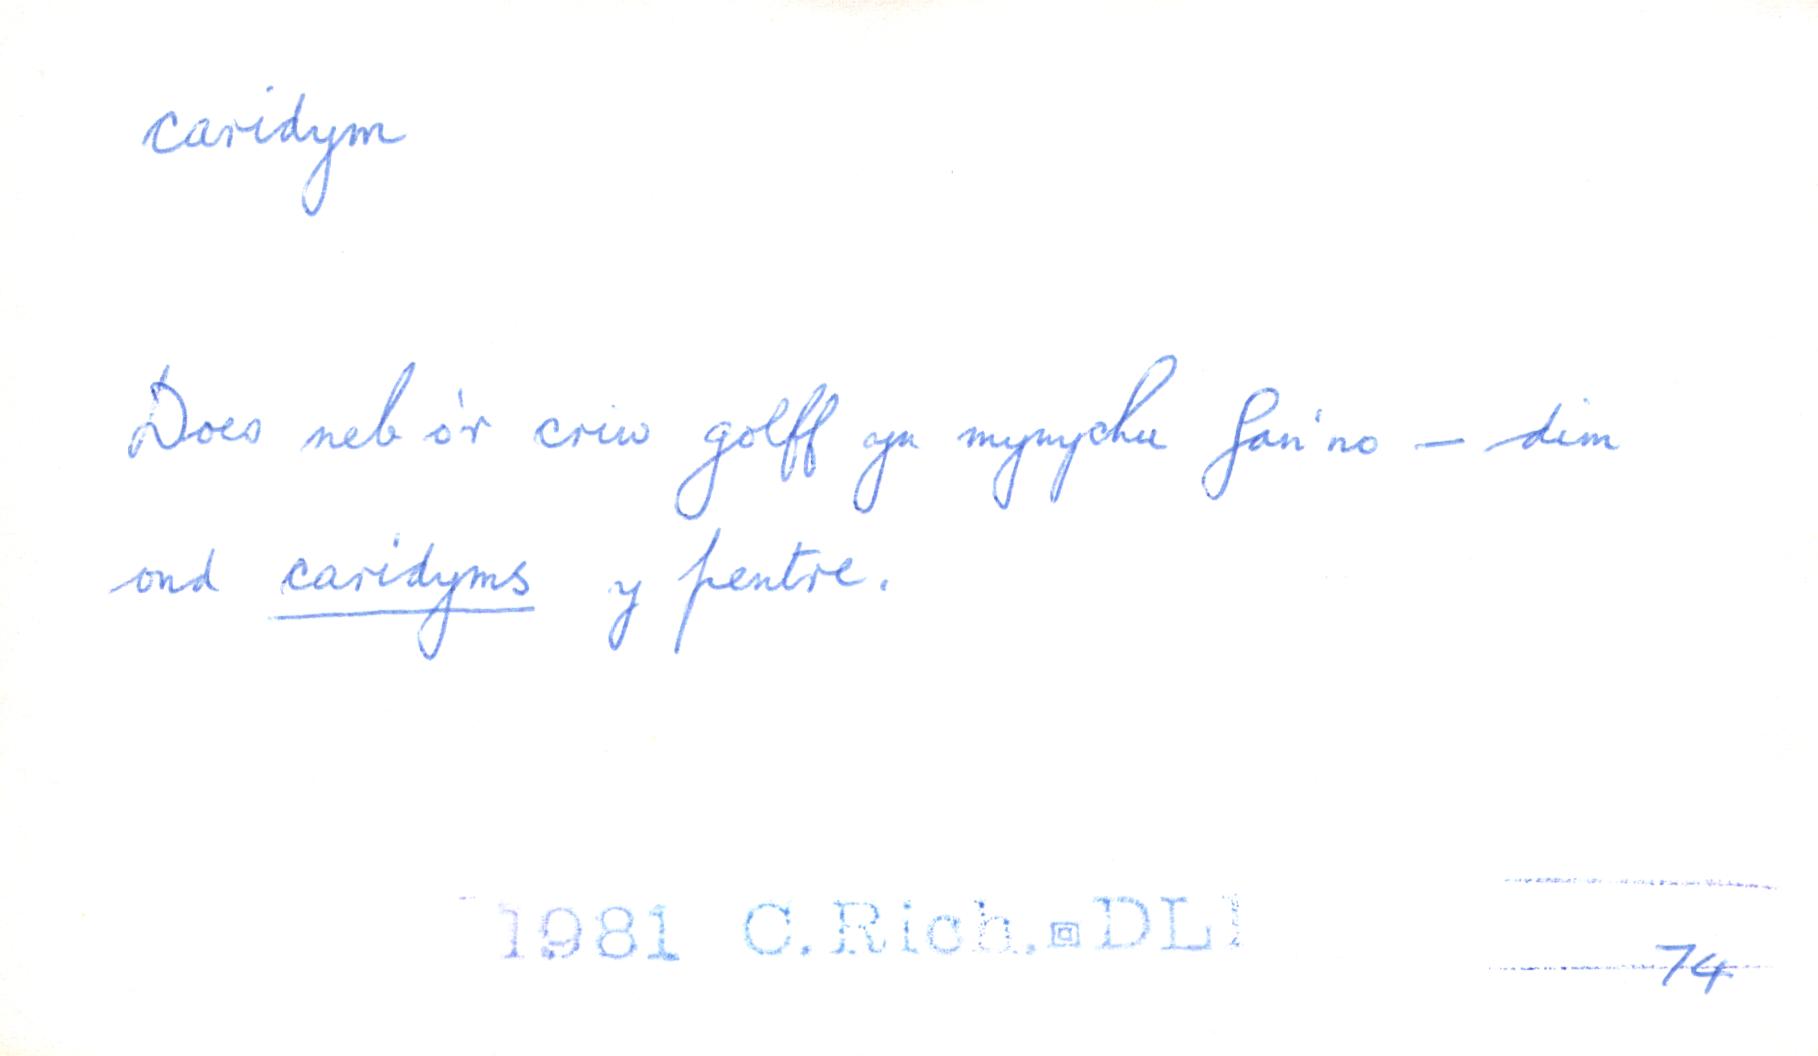 caridym
Does neb o'r criw golff yn mynychu fan'no – dim
ond caridyms y pentre.
1981 C.Rich. DLl
74